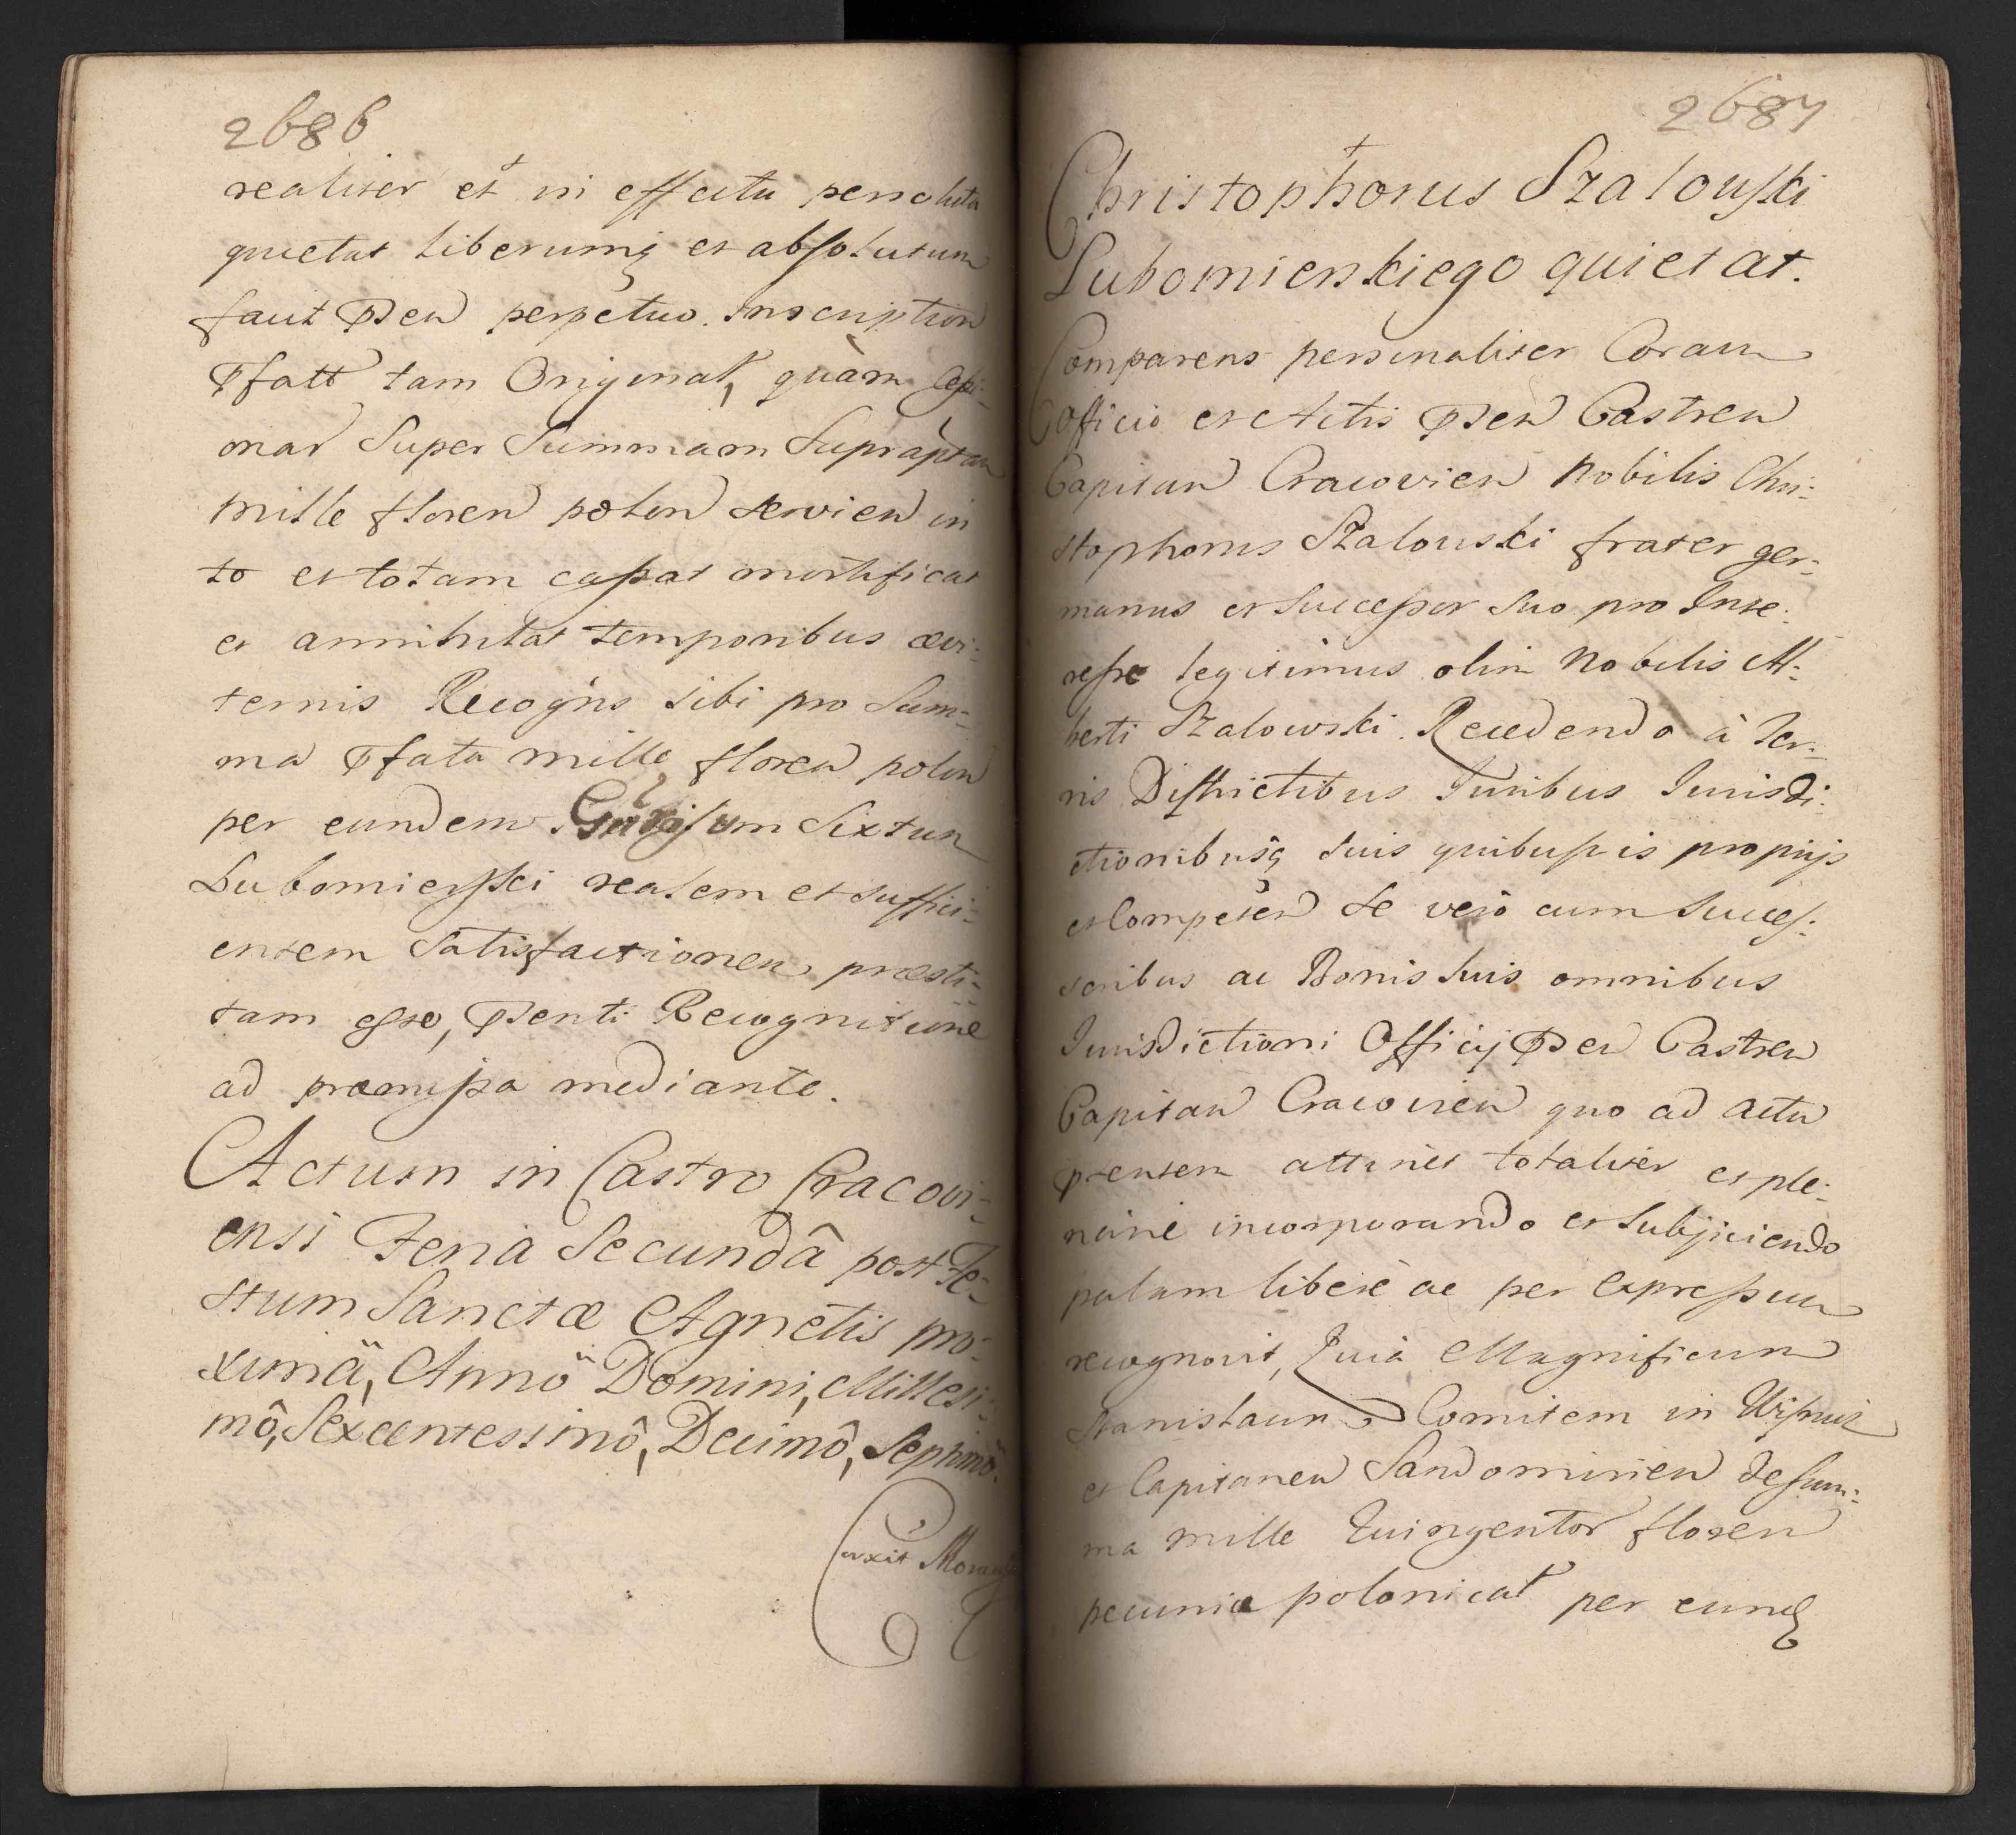 2686
realiter et in effectu persoluta
quietat liberumq et absolutum
facit Psen perpetuo. Inscription
Pfatt tam Original, quàm Cessi-
onar Super Summam Supraptam
mille floren polon servien in
to et totam cassat mortificat
et annihilat temporibus ævi-
ternis Recogns sibi pro Sum-
ma Pfata mille floren polon
per eundem Gnrosum Sixtum
Lubomierski realem et suffici-
entem Satisfactionem præsti-
tam esse, Psenti Recognitione
ad præmissa mediante.
Actum in Castro Cracovi-
ensi Feria Secundâ post Fe-
stum Sanctæ Agnetis pro-
ximä, Annö Domini, Millesi-
mô, Sexcentessimô, Decimô, Septimô.
Correxit
2687
Christophorus Szalouski
Lubomierskiego quietat.
Comparens personaliter Coram
Officio et Actis Psen Castren
Capitan Cracovien Nobilis Chri-
stophorus Szalouski frater ger-
manus et Successor Suo pro Inte-
resse legitimus olim Nobilis Al-
berti Szalowski. Recedendo à Ter-
ris Districtibus Juribus Jurisdi-
ctionibusq suis quibusvis propriis
et Competen se vero cum Succes-
soribus ac Bonis suis omnibus
Jurisdictioni Officij Psen Castren
Capitan Cracovien quo ad actu
Psentem attinet totaliter et ple-
nariè incorporando et Subjiciendo
palam liberè ac per expressum
recognovit, Quia Magnificum
Stanislaum Comitem in Wisnicz
et Capitaneu Sandomirien de sum-
ma mille Quingentor floren
pecuniæ polonical per eund